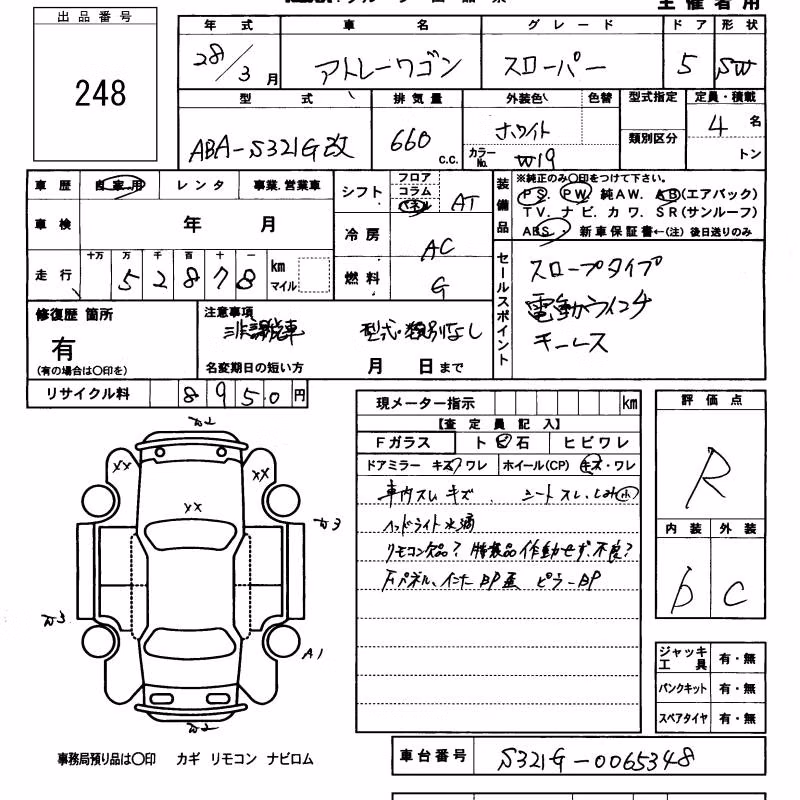 主催者用
出品番号
248
年式 車名 グレード ドア 形状
28/3月 アトレーワゴン スローパー 5 SW
型式 排気量 外装色 色替 型式指定 定員・積載
ABA-S321G改 660 c.c. ホワイト 類別区分 4名
カラーNo. W19 トン
車歴 自家用 レンタ 事業.営業車
シフト フロア コラム パネル AT
装備品 ※純正のみ〇印をつけて下さい。
PS. PW. 純AW. AB(エアバック)
TV. ナビ. カワ. SR(サンルーフ)
ABS. 新車保証書←(注) 後日送りのみ
車検 年 月
冷房 AC
走行 十万 万 千 百 十 一
52878 km マイル
燃料 G
セールスポイント
スロープタイプ
電動ウインチ
キーレス
修復歴 箇所
有
(有の場合は〇印を)
注意事項
非課税車 型式・類別なし
名変期日の短い方 月 日まで
リサイクル料 8950円
現メーター指示 km
【査定員記入】
Fガラス トビ石 ヒビワレ
ドアミラー キズ ワレ ホイール(CP) キズ・ワレ
車内スレ キズ. シートスレ.しみ小
ヘッドライト水滴
リモコン欠品? 特装品作動せず.不良?
Fパネル、インナーBP歪 ピラーBP
評価点
R
内装 外装
D C
XX XX
XX
A1
ジャッキ 工具 有・無
パンクキット 有・無
スペアタイヤ 有・無
事務局預り品は〇印 カギ リモコン ナビロム
車台番号 S321G-0065348